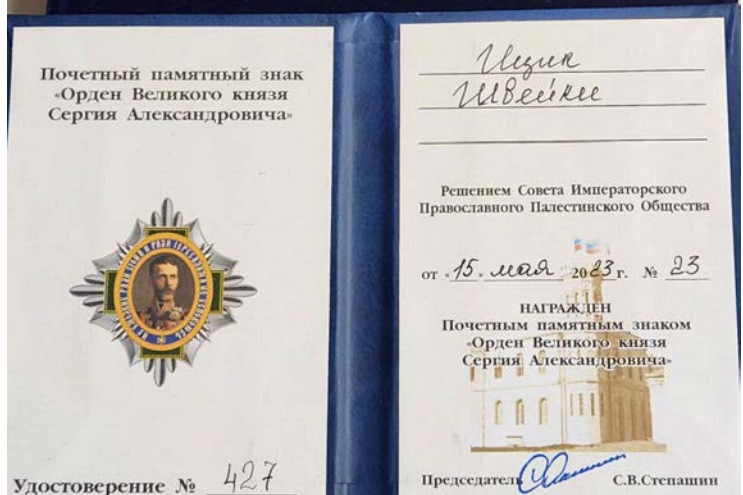 Почетный памятный знак
«Орден Великого князя
Сергия Александровича»
Удостоверение № 427
Ицик
Швейки
Решением Совета Императорского
Православного Палестинского Общества
от «15» мая 2023 г. № 23
НАГРАЖДЕН
Почетным памятным знаком
«Орден Великого князя
Сергия Александровича»
Председатель С.В.Степашин